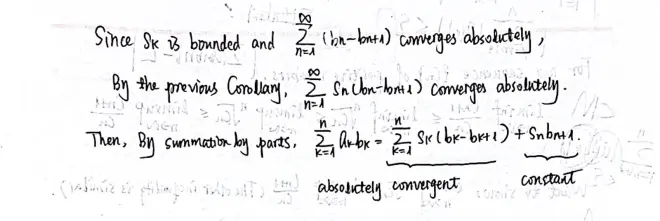 Since Sk is bounded and ∞ Σ n=1 (bn-bn+1) converges absolutely,
By the previous Corollary, ∞ Σ n=1 Sn(bn-bn+1) converges absolutely.
Then, By summation by parts, n Σ k=1 akbk = n Σ k=1 Sk(bk-bk+1) + Snbn+1.
absolutely convergent constant